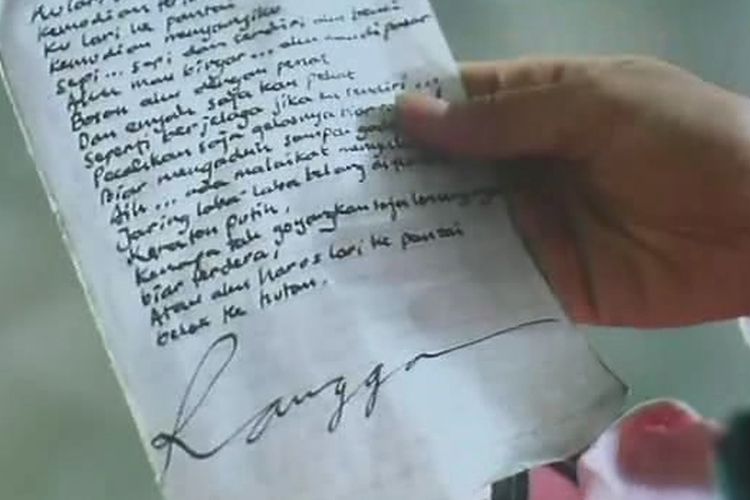 Ku lari
Kemudian ter
Ku lari ke pantai
Kemudian menyanyiku
Sepi... sepi dan sendiri aku benci
Aku mau bingar... aku mau di pasar
Bosan aku dengan penat
Dan enyah saja kau pekat
Seperti berjelaga jika ku sendiri...
Pecahkan saja gelasnya biar
Biar mengaduh sampai ga
Aih... ada malaikat menyu
Jaring laba-laba belang di
Keraton putih,
Kenapa tak goyangkan saja loncengnya
biar terdera,
Atau aku harus lari ke pantai
belok ke hutan.
Rangga